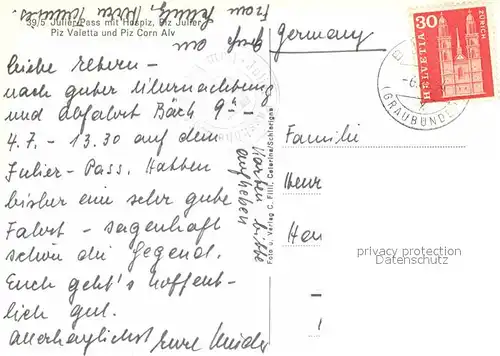 39/5 Julier-Pass mit Hospiz, Piz Julier,
Piz Valetta und Piz Corn Alv
Liebe Eltern -
nach guter Übernachtung
und Abfahrt Bäch 9ºº
4.7. - 13.30 auf dem
Julier-Pass. Hatten
bisher eine sehr gute
Fahrt - sagenhaft
schön die Gegend.
Euch geht's hoffent-
lich gut.
Allerherzlichst Eure Kinder
Gruß an
Frau
Karten bitte
aufheben
Foto u. Verlag C. Filli, Celerina/Schlarigna
Germany
30
HELVETIA
ZÜRICH
(GRAUBÜNDEN)
Familie
privacy protection
Datenschutz